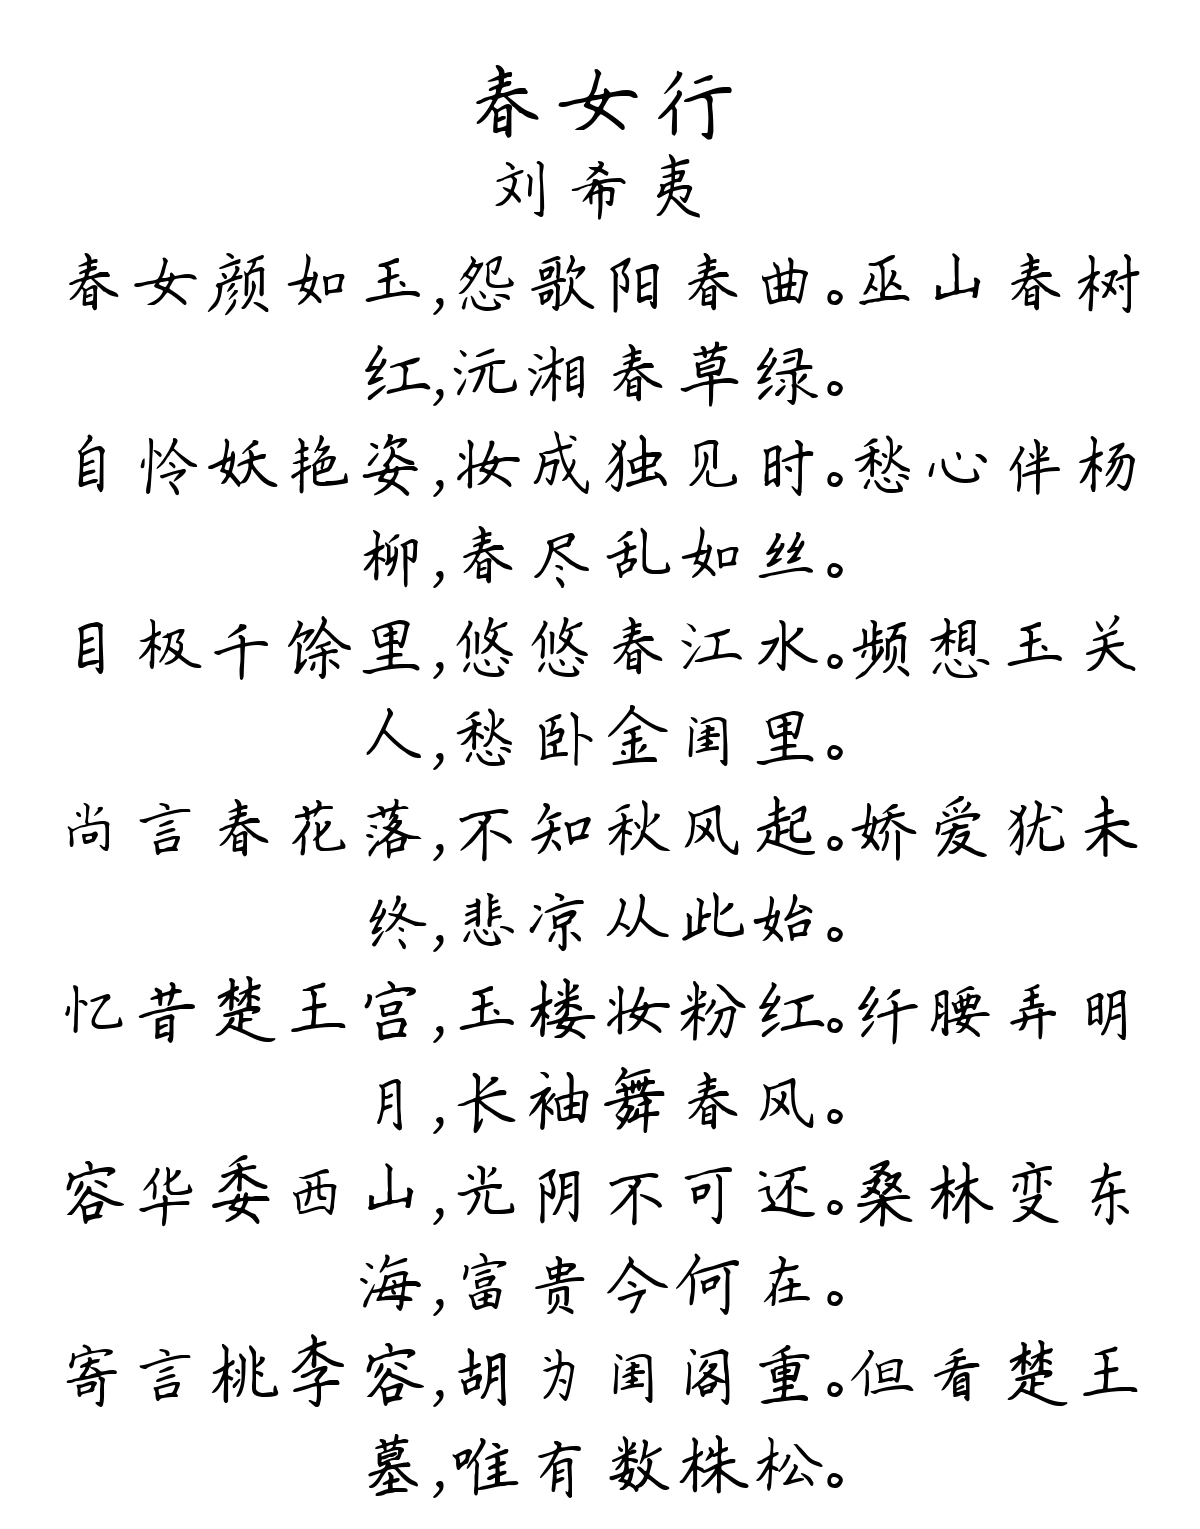 春女行
刘希夷
春女颜如玉,怨歌阳春曲。巫山春树
红,沅湘春草绿。
自怜妖艳姿,妆成独见时。愁心伴杨
柳,春尽乱如丝。
目极千馀里,悠悠春江水。频想玉关
人,愁卧金闺里。
尚言春花落,不知秋风起。娇爱犹未
终,悲凉从此始。
忆昔楚王宫,玉楼妆粉红。纤腰弄明
月,长袖舞春风。
容华委西山,光阴不可还。桑林变东
海,富贵今何在。
寄言桃李容,胡为闺阁重。但看楚王
墓,唯有数株松。